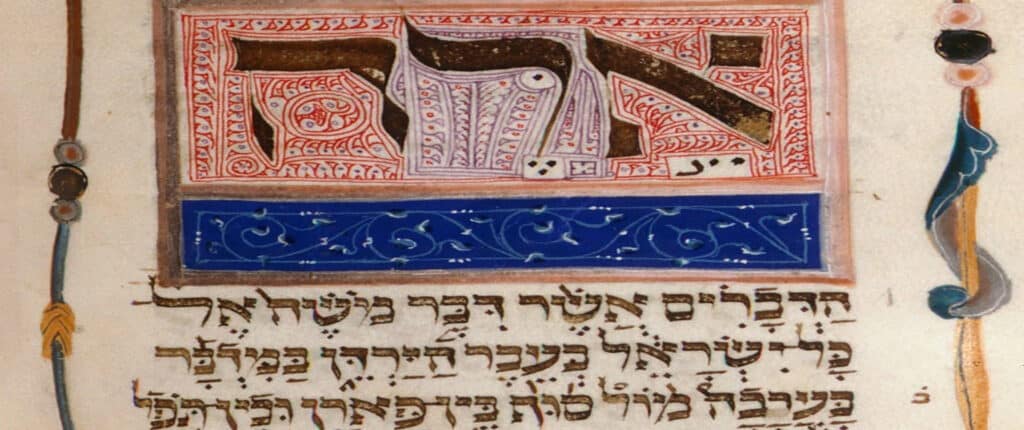 אֵלֶּה
הַדְּבָרִים אֲשֶׁר דִּבֶּר מֹשֶׁה אֶל
כָּל יִשְׂרָאֵל בְּעֵבֶר הַיַּרְדֵּן בַּמִּדְבָּר
בָּעֲרָבָה מוֹל סוּף בֵּין פָּארָן וּבֵין תֹּפֶל